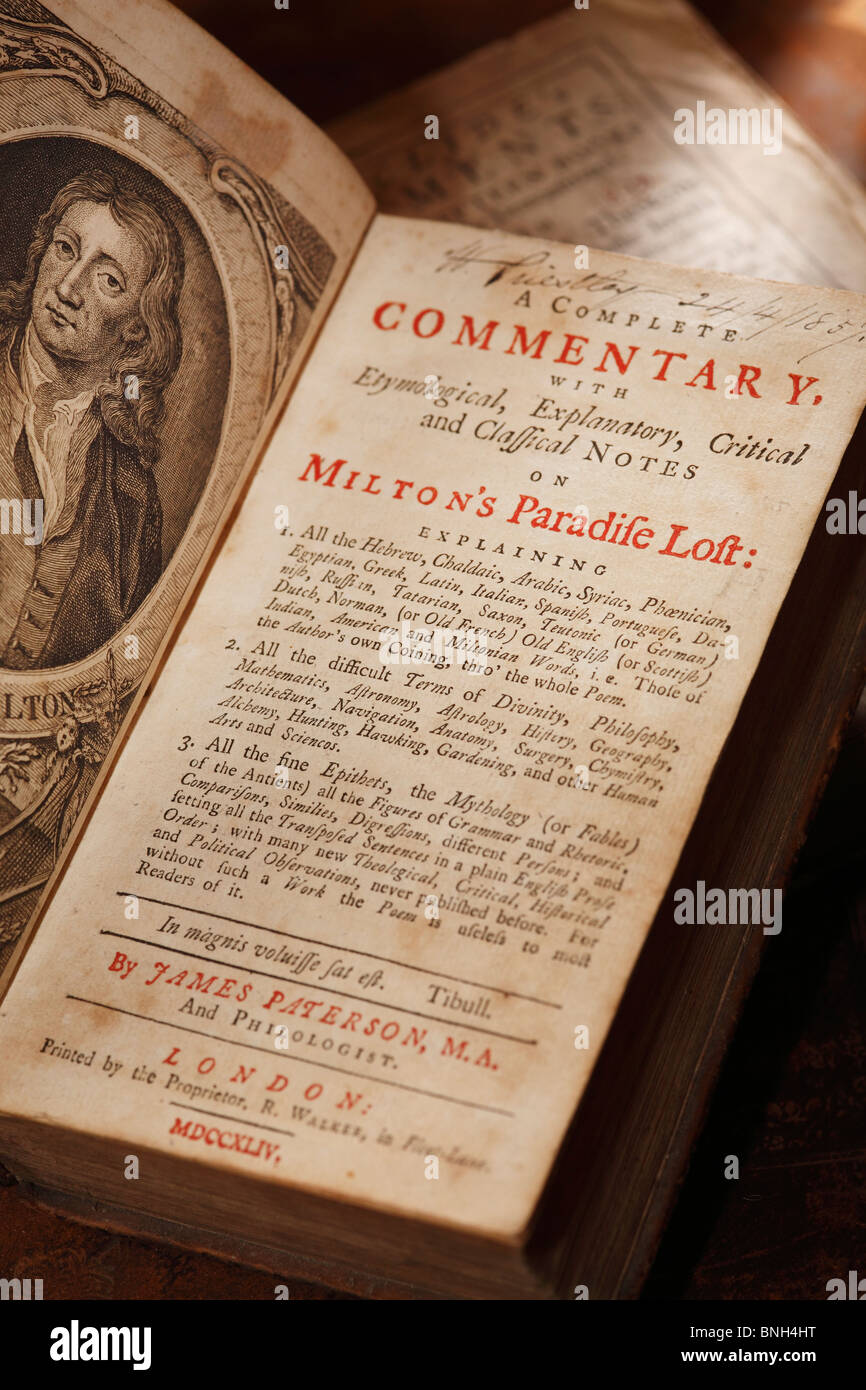 LTON
W Priestley 24/4/185
A COMPLETE
COMMENTARY,
WITH
Etymological, Explanatory, Critical
and Claſſical NOTES
ON
MILTON'S Paradiſe Loſt:
EXPLAINING
1. All the Hebrew, Chaldaic, Arabic, Syriac, Phœnician,
Egyptian, Greek, Latin, Italian, Spaniſh, Portugueſe, Da-
niſh, Ruſſian, Tatarian, Saxon, Teutonic (or German)
Dutch, Norman, (or Old French) Old Engliſh (or Scottiſh)
Indian, American and Miltonian Words, i. e. Thoſe of
the Author's own Coining, thro' the whole Poem.
2. All the difficult Terms of Divinity, Philoſophy,
Mathematics, Aſtronomy, Aſtrology, Hiſtory, Geography,
Architecture, Navigation, Anatomy, Surgery, Chymiſtry,
Alchemy, Hunting, Hawking, Gardening, and other Human
Arts and Sciences.
3. All the fine Epithets, the Mythology (or Fables)
of the Antients) all the Figures of Grammar and Rhetoric,
Compariſons, Similies, Digreſſions, different Perſons; and
ſetting all the Tranſpoſed Sentences in a plain Engliſh Proſe
Order; with many new Theological, Critical, Hiſtorical
and Political Obſervations, never publiſhed before. For
without ſuch a Work the Poem is uſeleſs to moſt
Readers of it.
In magnis voluiſſe ſat eſt. Tibull.
By JAMES PATERSON, M.A.
And PHILOLOGIST.
LONDON:
Printed by the Proprietor, R. WALKER, in Fleet-Lane.
MDCCXLIV.
alamy
Image ID: BNH4HT
www.alamy.com